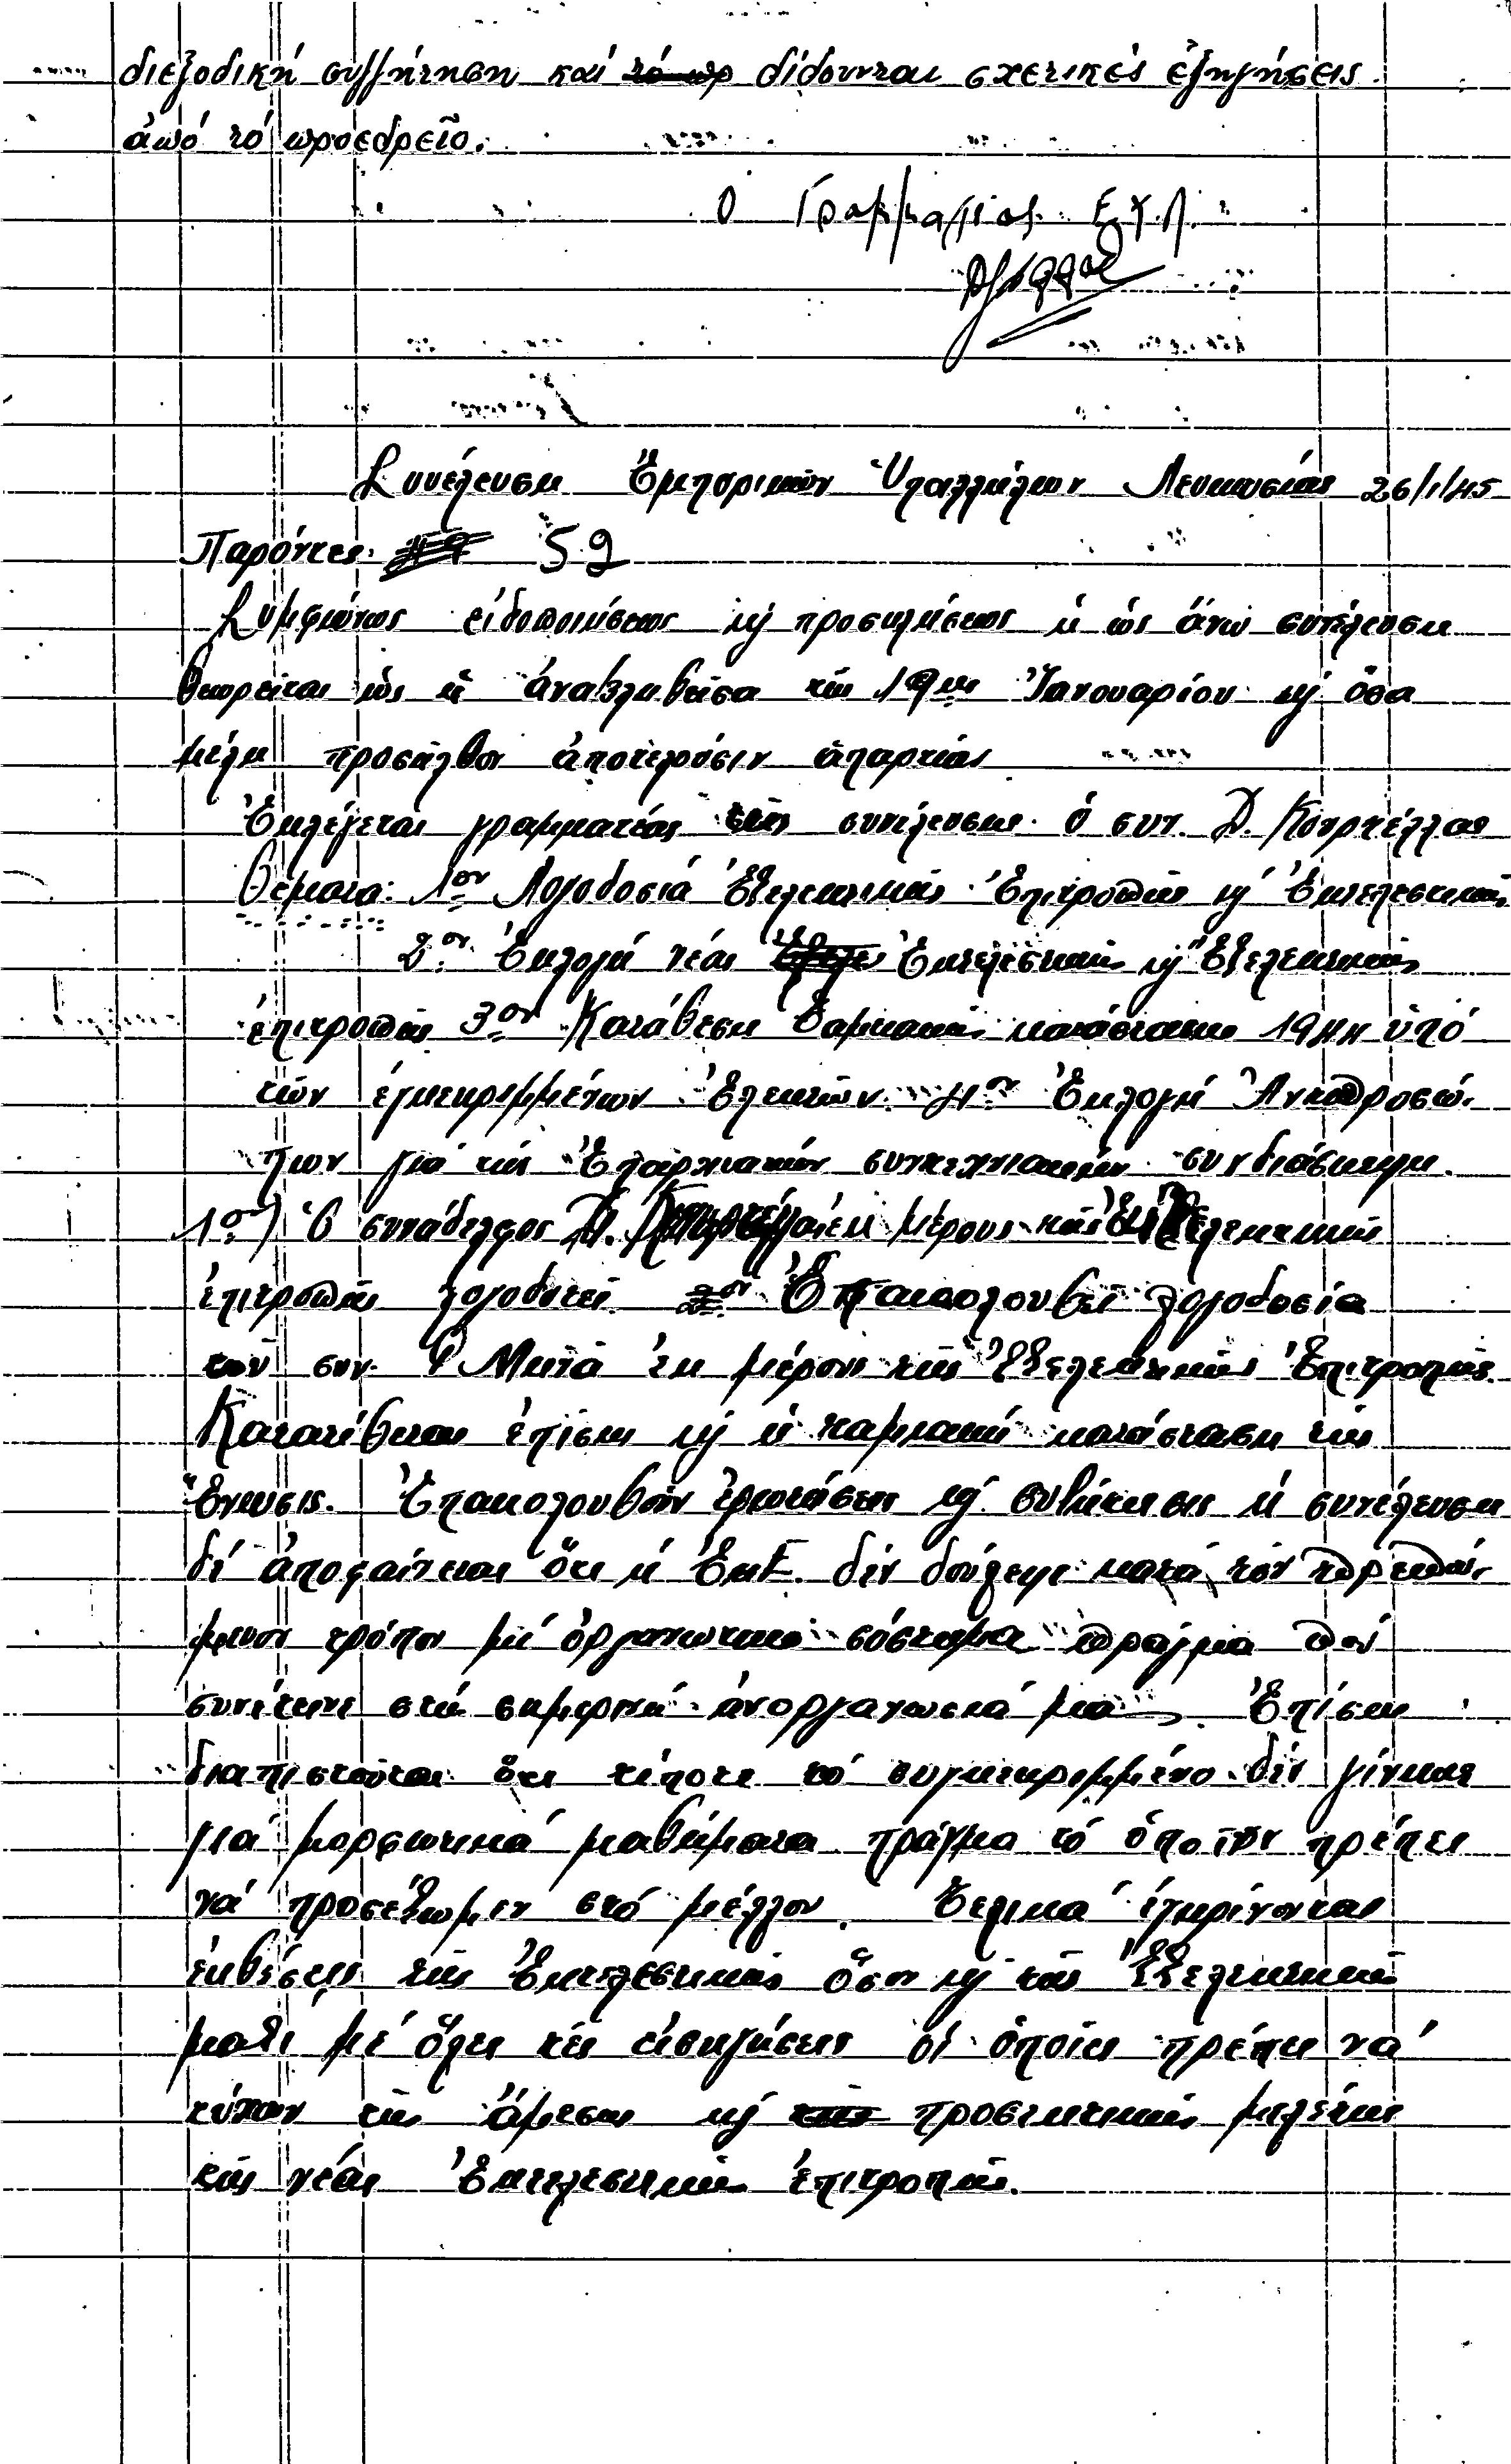 διεξοδική συζήτηση καί τό πρ δίδουνται σχετικές ἐξηγήσεις
ἀπό τό προεδρεῖο.
Ο Γραμματεας Ε.Χ.Λ.
Συνέλευση Ἐμπορικῶν Ὑπαλλήλων Λευκωσίας 26/1/45
Παρόντες 52
Συμφώνως εἰδοποιήσεως ϗ προσκλήσεως ἡ ὡς ἄνω συνέλευση
θεωρεῖται ὡς ἡ ἀναβληθεῖσα τῆς 19ης Ἰανουαρίου ϗ ὅσα
μέλη προσῆλθον ἀποτελοῦσιν ἀπαρτίαν
Ἐκλέγεται γραμματέας τῆς συνέλευσης ὁ συν. Δ. Κουρτέλλας
Θέματα: 1ον Λογοδοσιά Ἐξελεκτικῆς Ἐπιτροπῆς ϗ Ἐκτελεστικῆς
2ον Ἐκλογή νέας Ἐξελε Ἐκτελεστικῆς ϗ Ἐξελεκτικῆς
ἐπιτροπῆς 3ον Κατάθεση Ταμιακῆς κατάστασης 1944 ὑπό
τῶν ἐγκεκριμμένων Ἐλεκτῶν. 4ον Ἐκλογή Ἀντιπροσώ-
πων γιά τήν Ἐπαρχιακήν συντεχνιακήν συνδιάσκεψη.
1ον) Ὁ συνάδελφος Δ. ἐκ μέρους τῆς Ἐξελεκτικῆς
ἐπιτροπῆς λογοδοτεῖ 2ον Ἐπακολουθεῖ λογοδοσία
τοῦ συν. ἐκ μέρους τῆς Ἐξελεκτικῆς Ἐπιτροπῆς.
Κατατίθεται ἐπίσης ϗ ἡ ταμιακή κατάσταση τῆς
Ἕνωσις. Ἐπακολουθοῦν ἐρωτήσεις ϗ συζήτησις ἡ συνέλευση
δέ ἀποφαίνεται ὅτι ἡ Ἐκ.Ε. δέν δούλεψε κατά τόν πρεπού-
μενον τρόπον μέ ὀργανωτικό σύστημα πρᾶγμα πού
συνέτεινε στή σημερινή ἀνοργανωσιά μας. Ἐπίσης
διαπιστοῦται ὅτι τίποτε τό συγκεκριμμένο δέν γίνηκε
γιά μορφωτικά μαθήματα πρᾶγμα τό ὁποῖον πρέπει
νά προσέξωμεν στό μέλλον. Τελικά ἐγκρίνονται
ἐκθέσεις τῆς Ἐκτελεστικῆς ὅσον ϗ τῆς Ἐξελεκτικῆς
μαζί μέ ὅλες τές εἰσηγήσεις οἱ ὁποῖες πρέπει νά
τύχουν τῆς ἄμεσης ϗ τῆς προσεκτικῆς μελέτης
τῆς νέας Ἐκτελεστικῆς ἐπιτροπῆς.